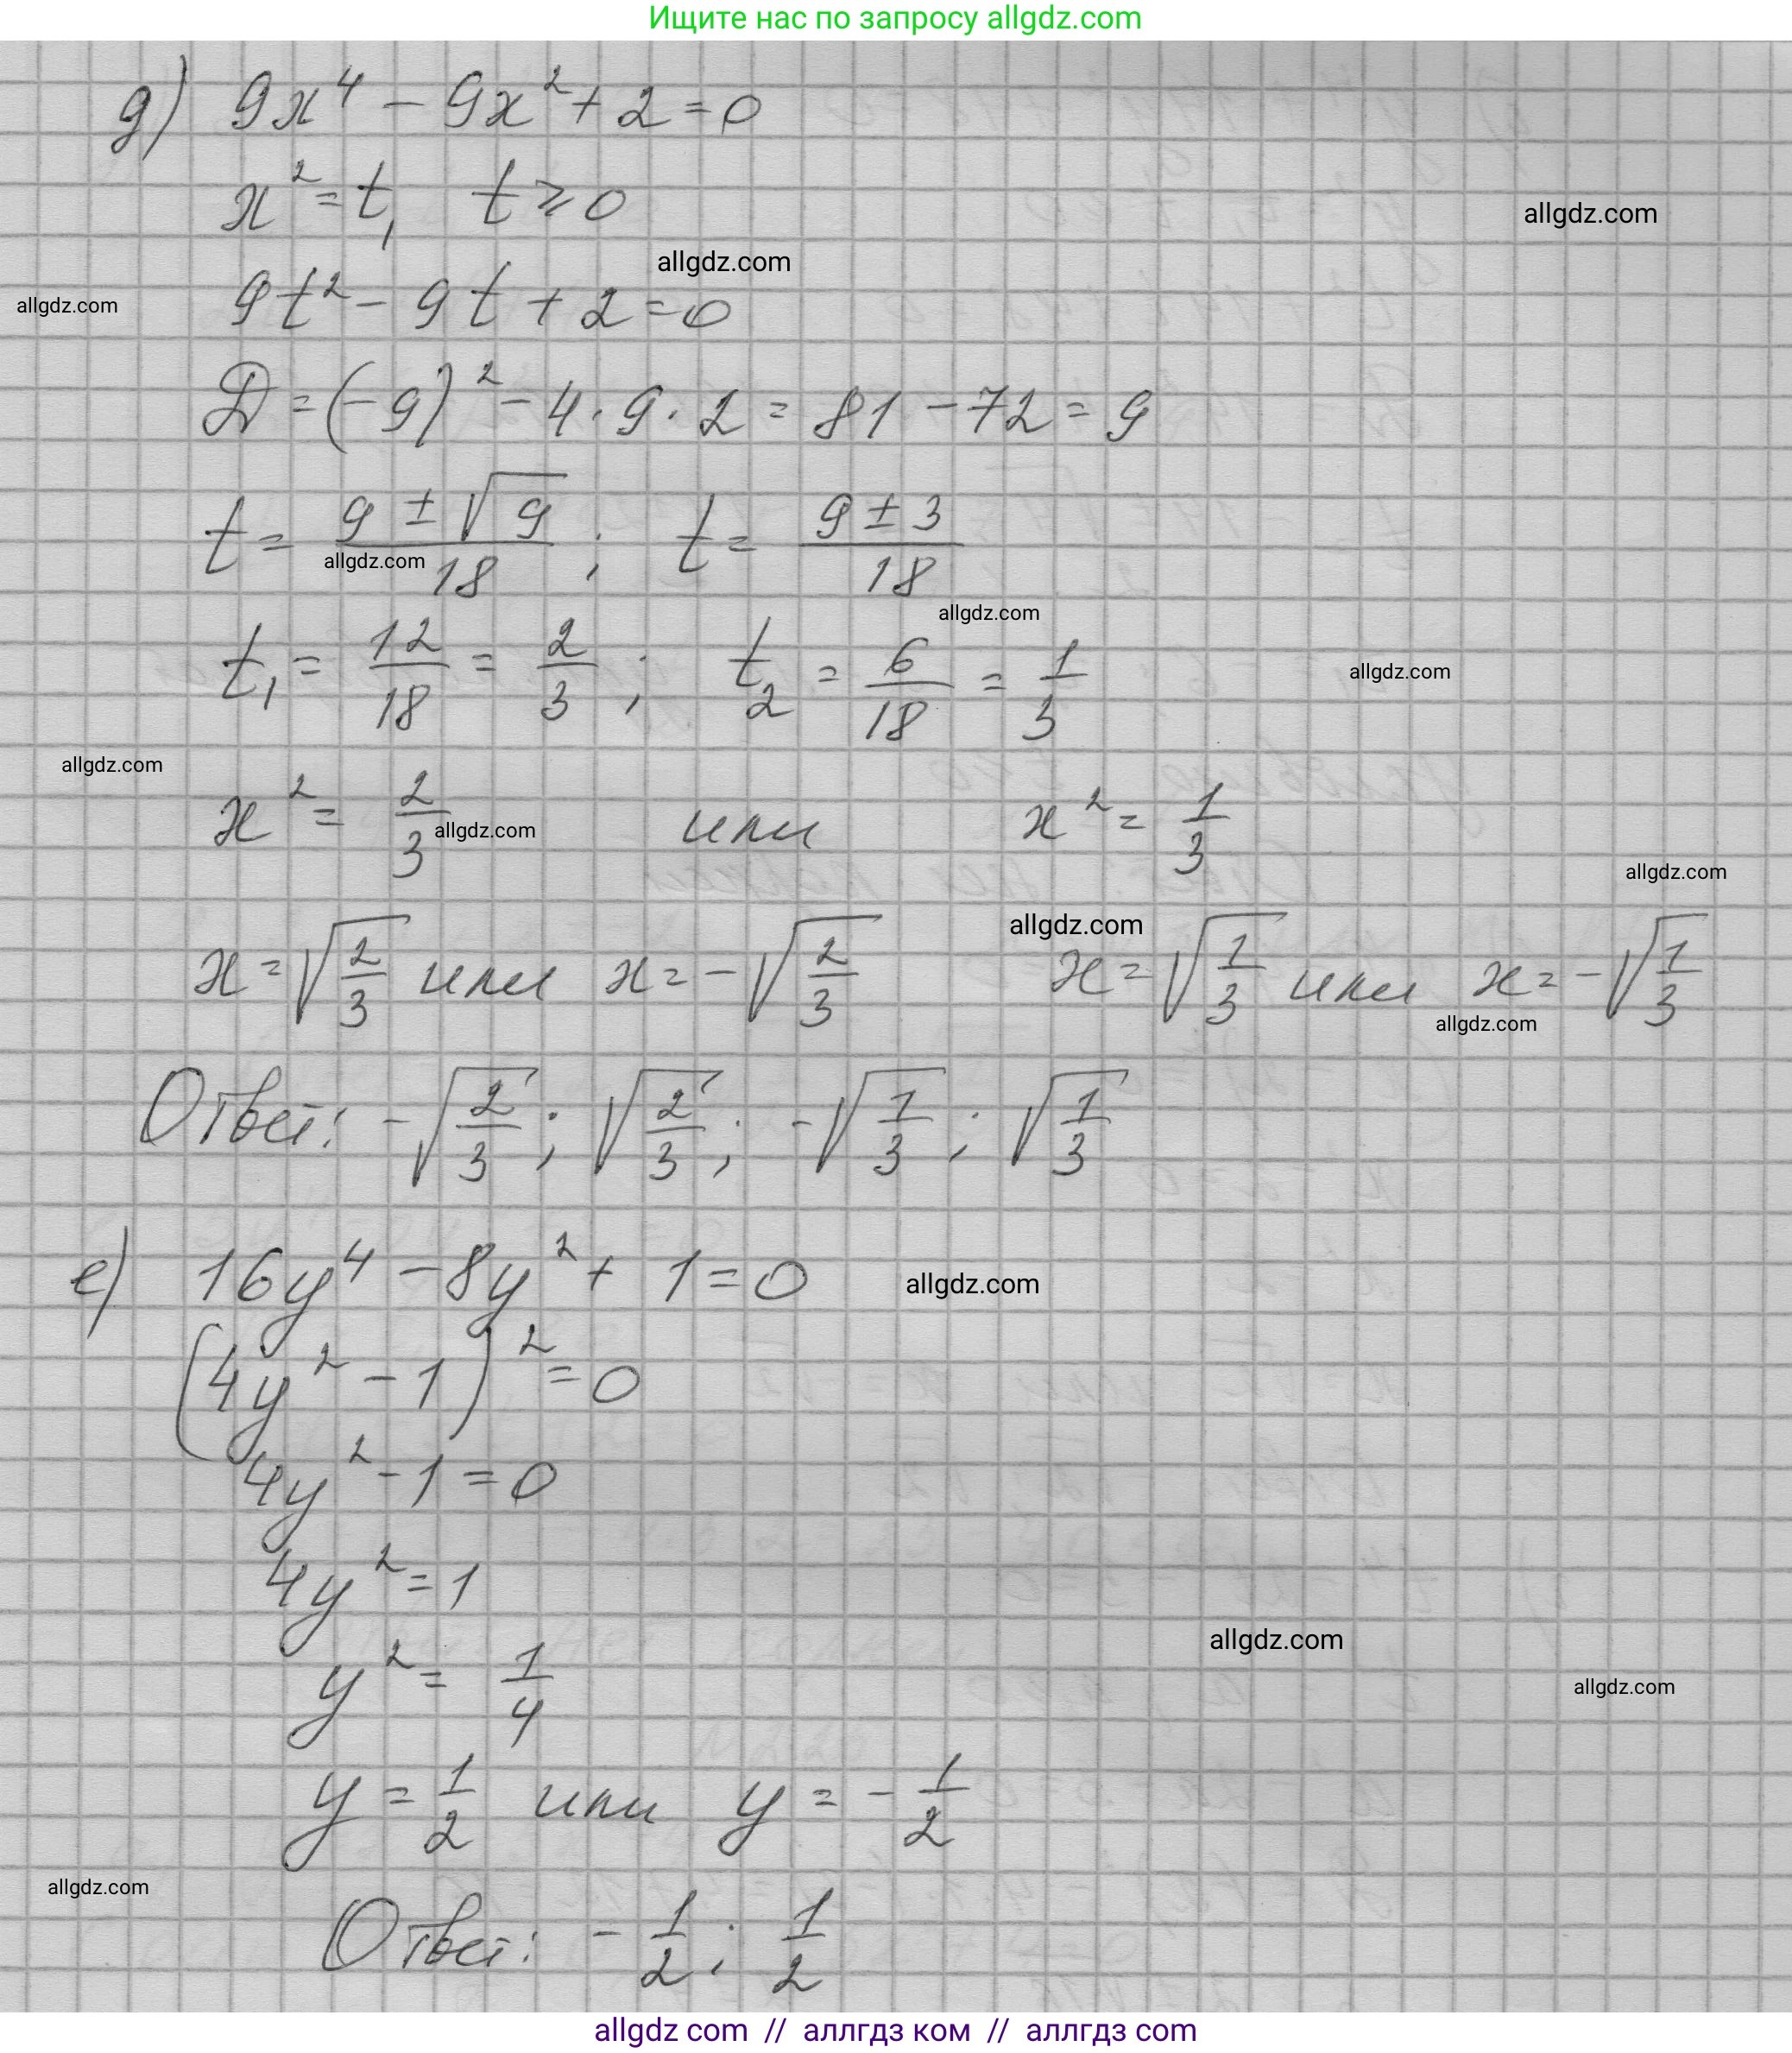 Ищите нас по запросу allgdz.com
д) 9x⁴ - 9x² + 2 = 0
x² = t, t ⩾ 0
allgdz.com
allgdz.com
allgdz.com
9t² - 9t + 2 = 0
D = (-9)² - 4 · 9 · 2 = 81 - 72 = 9
t = (9 ± √9)/18 ; t = (9 ± 3)/18
allgdz.com
allgdz.com
t₁ = 12/18 = 2/3 ; t₂ = 6/18 = 1/3
allgdz.com
allgdz.com
x² = 2/3 или x² = 1/3
allgdz.com
allgdz.com
allgdz.com
x = √(2/3) или x = -√(2/3) x = √(1/3) или x = -√(1/3)
allgdz.com
Ответ: -√(2/3) ; √(2/3) ; -√(1/3) ; √(1/3)
е) 16y⁴ - 8y² + 1 = 0
allgdz.com
(4y² - 1)² = 0
4y² - 1 = 0
4y² = 1
allgdz.com
y² = 1/4
allgdz.com
y = 1/2 или y = -1/2
allgdz.com
Ответ: -1/2 ; 1/2
allgdz com // аллгдз ком // аллгдз com